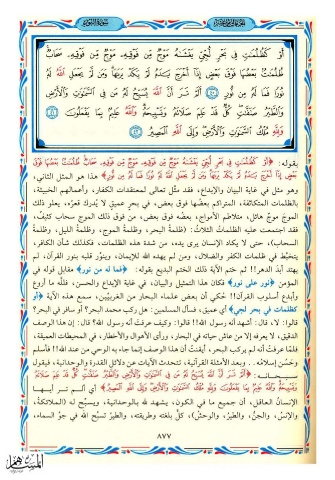 أَوْ كَظُلُمَاتٍ فِي بَحْرٍ لُّجِّيٍّ يَغْشَاهُ مَوْجٌ مِّن فَوْقِهِ مَوْجٌ مِّن فَوْقِهِ سَحَابٌ
ظُلُمَاتٌ بَعْضُهَا فَوْقَ بَعْضٍ إِذَا أَخْرَجَ يَدَهُ لَمْ يَكَدْ يَرَاهَا وَمَن لَّمْ يَجْعَلِ اللَّهُ لَهُ
نُورًا فَمَا لَهُ مِن نُّورٍ ۝ أَلَمْ تَرَ أَنَّ اللَّهَ يُسَبِّحُ لَهُ مَن فِي السَّمَاوَاتِ وَالْأَرْضِ
وَالطَّيْرُ صَافَّاتٍ كُلٌّ قَدْ عَلِمَ صَلَاتَهُ وَتَسْبِيحَهُ وَاللَّهُ عَلِيمٌ بِمَا يَفْعَلُونَ
وَلِلَّهِ مُلْكُ السَّمَاوَاتِ وَالْأَرْضِ وَإِلَى اللَّهِ الْمَصِيرُ
بقوله: ﴿أَوْ كَظُلُمَاتٍ فِي بَحْرٍ لُّجِّيٍّ يَغْشَاهُ مَوْجٌ مِّن فَوْقِهِ مَوْجٌ مِّن فَوْقِهِ سَحَابٌ ظُلُمَاتٌ بَعْضُهَا فَوْقَ
بَعْضٍ إِذَا أَخْرَجَ يَدَهُ لَمْ يَكَدْ يَرَاهَا وَمَن لَّمْ يَجْعَلِ اللَّهُ لَهُ نُورًا فَمَا لَهُ مِن نُّورٍ﴾ هذا هو المثل الثاني،
وهو مثل في غاية البيان والإبداع، فقد مثَّل تعالى لمعتقدات الكفار، وأعمالهم الخبيثة،
بالظلمات المتكاثفة، المتراكم بعضُها فوق بعض، في بحرٍ عميقٍ لا يُدرك قعرُه، يعلو ذلك
الموجَ موجٌ هائل، متلاطم الأمواج، بعضُه فوق بعض، من فوق ذلك الموج سحاب كثيف،
فقد اجتمعت عليه الظلماتُ الثلاثُ: (ظلمة البحر، وظلمة الموج، وظلمة الليل، وظلمة
السحاب)، حتى لا يكاد الإنسان يرى يده، من شدة هذه الظلمات، فكذلك شأن الكافر،
يتخبط في ظلمات الكفر والضلال، ومن لم يهده الله للإيمان، وينوِّر قلبه بنور القرآن، لم
يهتد أبدَ الدهر!! ثم ختم الآية ذلك الختم البديع بقوله: ﴿فما له من نور﴾ مقابل قوله في
المؤمن ﴿نور على نور﴾ فكان هذا التمثيل والبيان، في غاية الإبداع والحسن، فللَّه ما أروع
وأبدع أسلوب القرآن!! حُكي أن بعض علماء البحار من الغربيين، سمع هذه الآية ﴿أو
كظلمات في بحر لجي﴾ أي عميق، فسأل المسلمين: هل ركب محمد البحر؟ أو سافر في البحر؟
قالوا: لا، قال: أشهد أنه رسول الله!! قالوا: وكيف عرفتَ أنه رسول الله؟ قال: إن هذا الوصف
الدقيق، لا يعرفه إلا من عاش حياته في البحار، ورأى الأهوال والأخطار، في المحيطات العميقة،
فلما عرفتُ أنه لم يركب البحر، أيقنتُ أن هذا الوصف إنما جاء به الوحي من عند الله!! فأسلم
وحَسُن إسلامه. . وبعد الأمثلة القرآنية، تتحدث الآيات عن دلائل القدرة والوحدانية، فيقول
سبحانه: ﴿أَلَمْ تَرَ أَنَّ اللَّهَ يُسَبِّحُ لَهُ مَن فِي السَّمَاوَاتِ وَالْأَرْضِ وَالطَّيْرُ صَافَّاتٍ كُلٌّ قَدْ عَلِمَ صَلَاتَهُ
وَتَسْبِيحَهُ وَاللَّهُ عَلِيمٌ بِمَا يَفْعَلُونَ وَلِلَّهِ مُلْكُ السَّمَاوَاتِ وَالْأَرْضِ وَإِلَى اللَّهِ الْمَصِيرُ﴾ أي ألم تر أيها
الإنسانُ العاقل، أن جميع ما في الكون، يشهد لله بالوحدانية، ويسبِّح له (الملائكةُ،
والإنسُ، والجنُّ، والطيرُ، والوحشُ)، كلٌّ بلغته وطريقته، والطيرُ تسبِّح الله في جوّ السماء،
٨٧٧